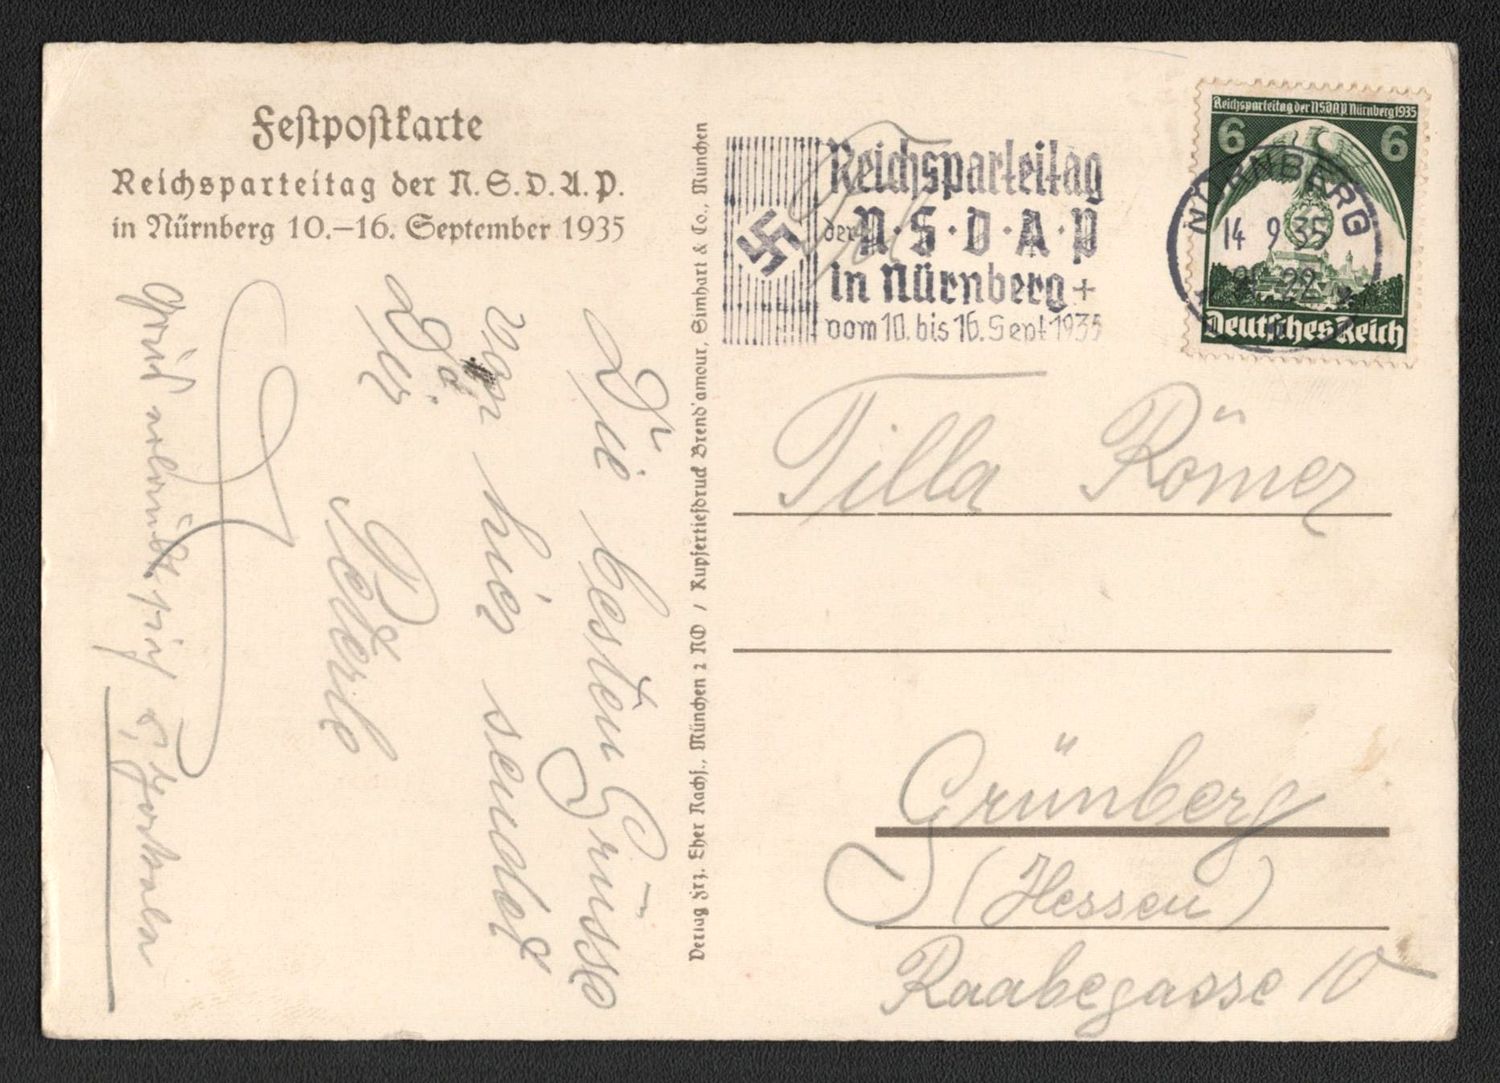 Festpostkarte
Reichsparteitag der N.S.D.A.P.
in Nürnberg 10.–16. September 1935
Die besten Grüsse
von hier sendet
Dir
Peterle
Gruß erlaubt sich
Verlag Frz. Eher Nachf., München 2 NO / Kupfertiefdruck Brend'amour, Simhart & Co., München
Reichsparteitag
der N·S·D·A·P
in Nürnberg +
vom 10. bis 16. Sept 1935
Reichsparteitag der NSDAP Nürnberg 1935
6 6
Deutsches Reich
NÜRNBERG
14 9 35
22
Tilla Römer
Grünberg
(Hessen)
Raabegasse 10